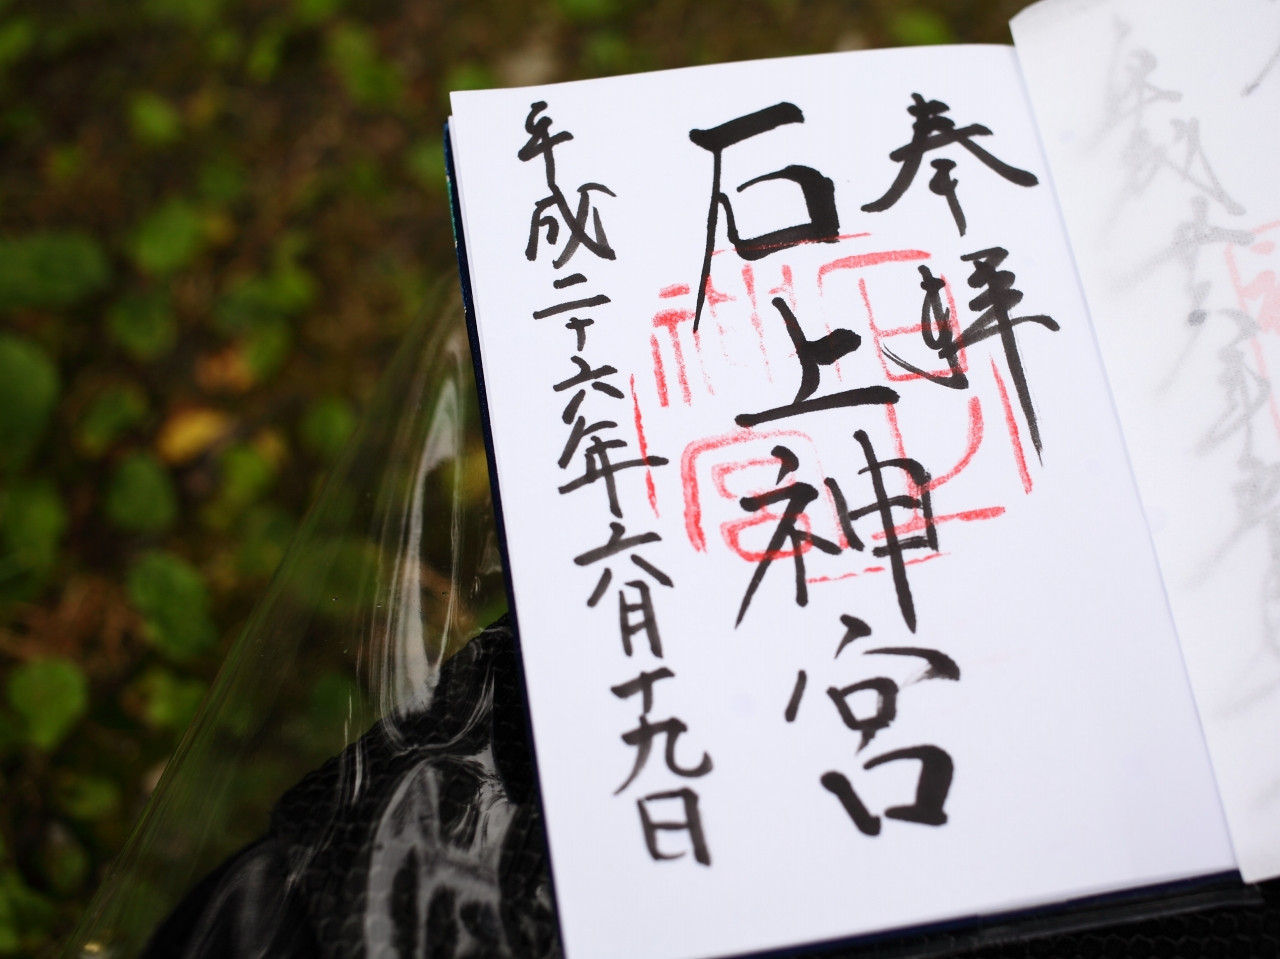 奉拝
石上神宮
平成二十六年六月十九日